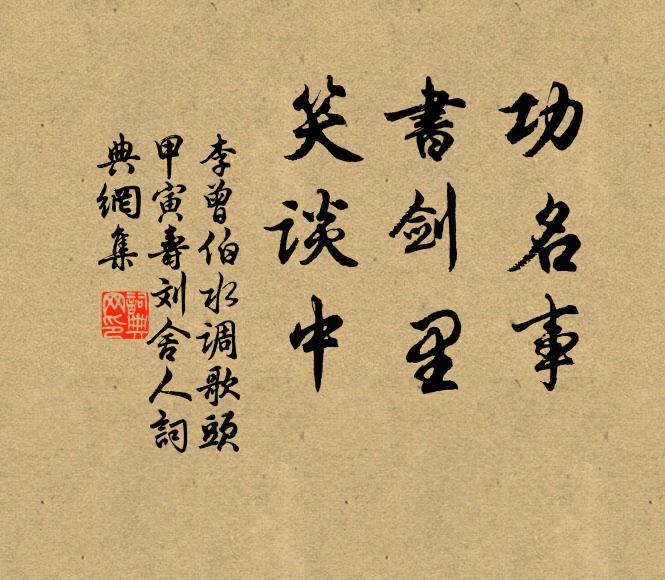 功名事
書剑里
笑談中
李曾伯水調歌頭
甲寅壽刘舍人詞
典網集
詞典
网印